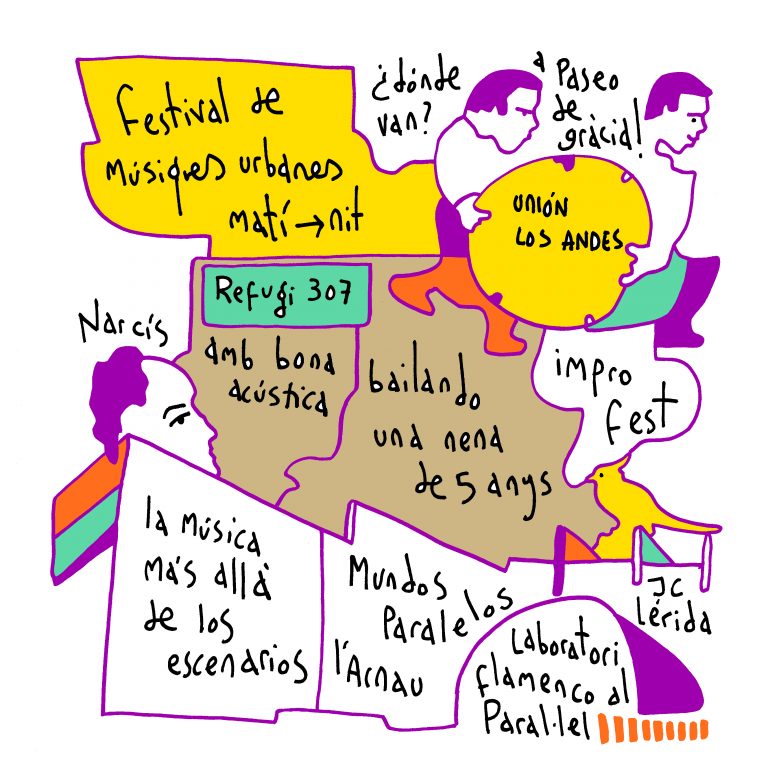 Festival de
Músiques urbanes
matí → nit
¿dónde
van?
a Paseo
de
gràcia!
UNIÓN
LOS ANDES
Refugi 307
amb bona
acústica
Narcís
bailando
una nena
de 5 anys
impro
fest
la música
más allà
de los
escenarios
Mundos
Paralelos
l'Arnau
JC
Lérida
Laboratori
flamenco al
Paral·lel